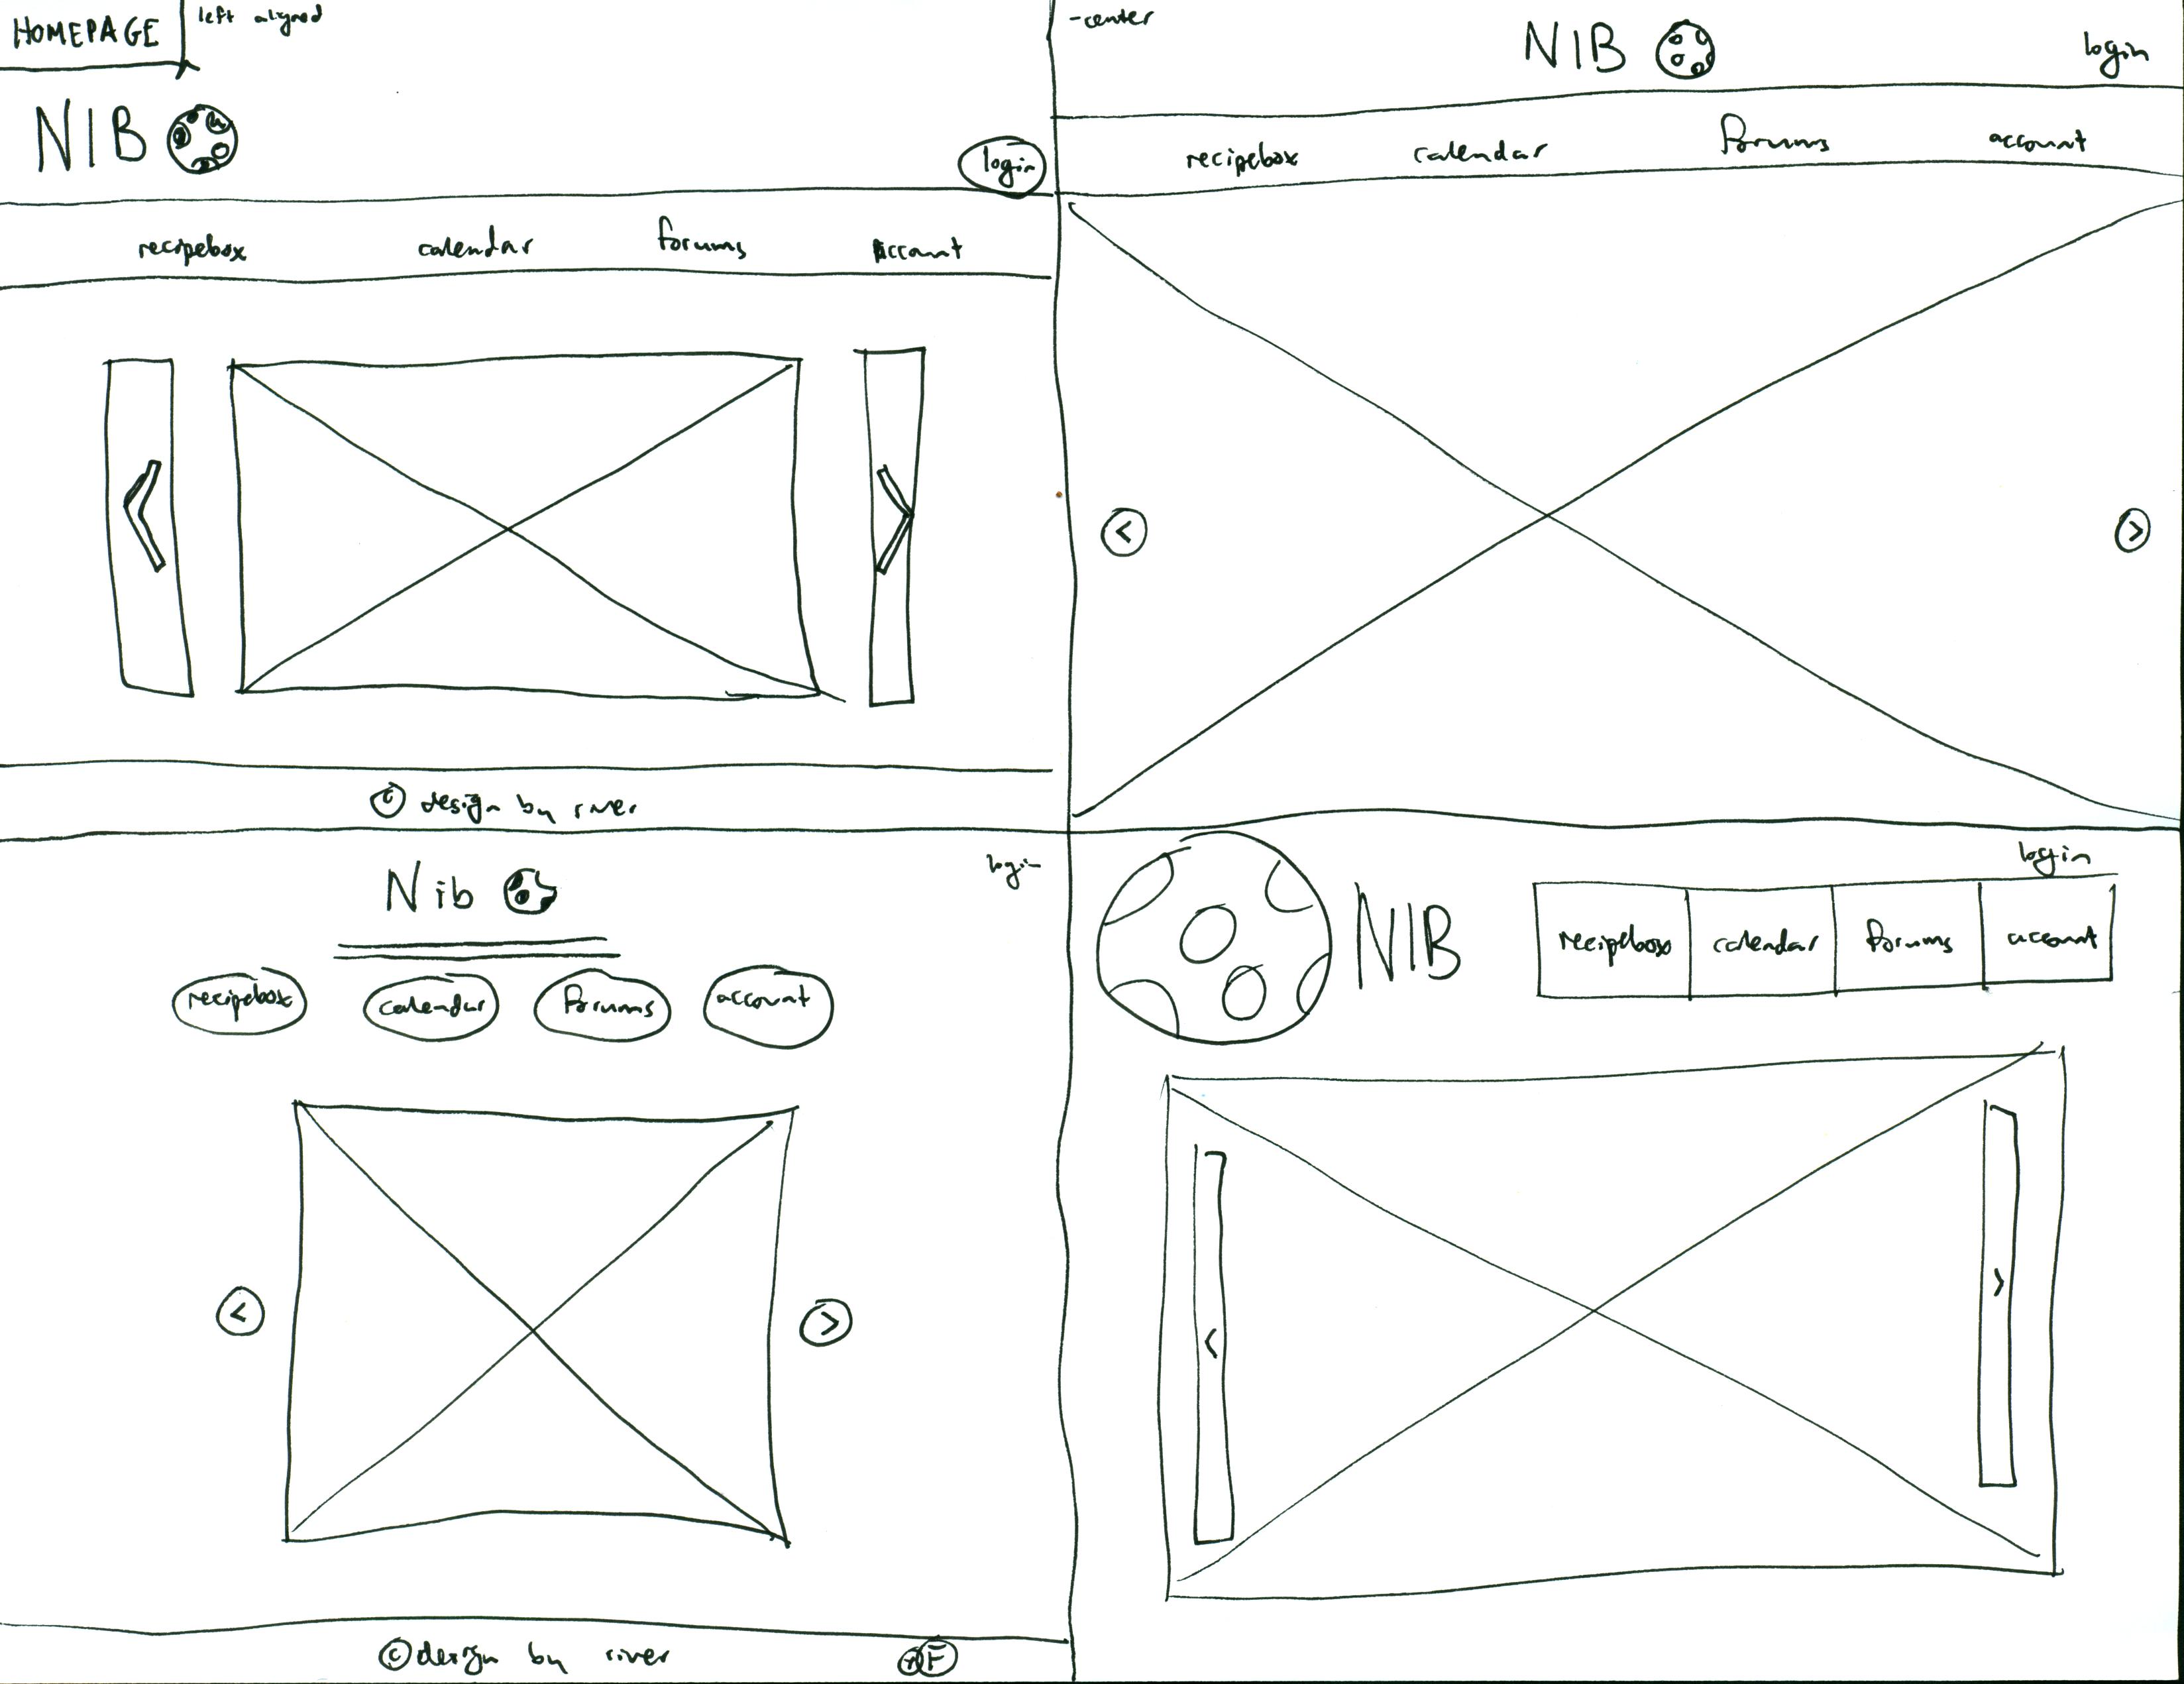 HOMEPAGE
left aligned
NIB
login
recipebox calendar forums account
<
>
© design by river
-center
NIB
login
recipebox calendar forums account
<
>
Nib
login
recipebox calendar forums account
<
>
© design by river
F
login
NIB
recipebox calendar forums account
<
>